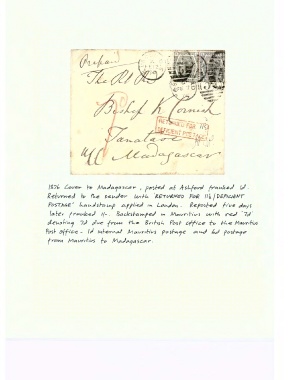 Prepaid
The Rt Rd
Bishop K. Cornish
RETURNED FOR
DEFICIENT POSTAGE
Tamatave
Madagascar
1876 Cover to Madagascar, posted at Ashford franked 1d.
Returned to the sender with RETURNED FOR 11½/DEFICIENT
POSTAGE' handstamp applied in London. Reposted five days
later franked 1/-. Backstamped in Mauritius with red 7d
denoting 7d due from the British Post office to the Mauritius
Post Office - 1d internal Mauritius postage and 6d postage
from Mauritius to Madagascar.